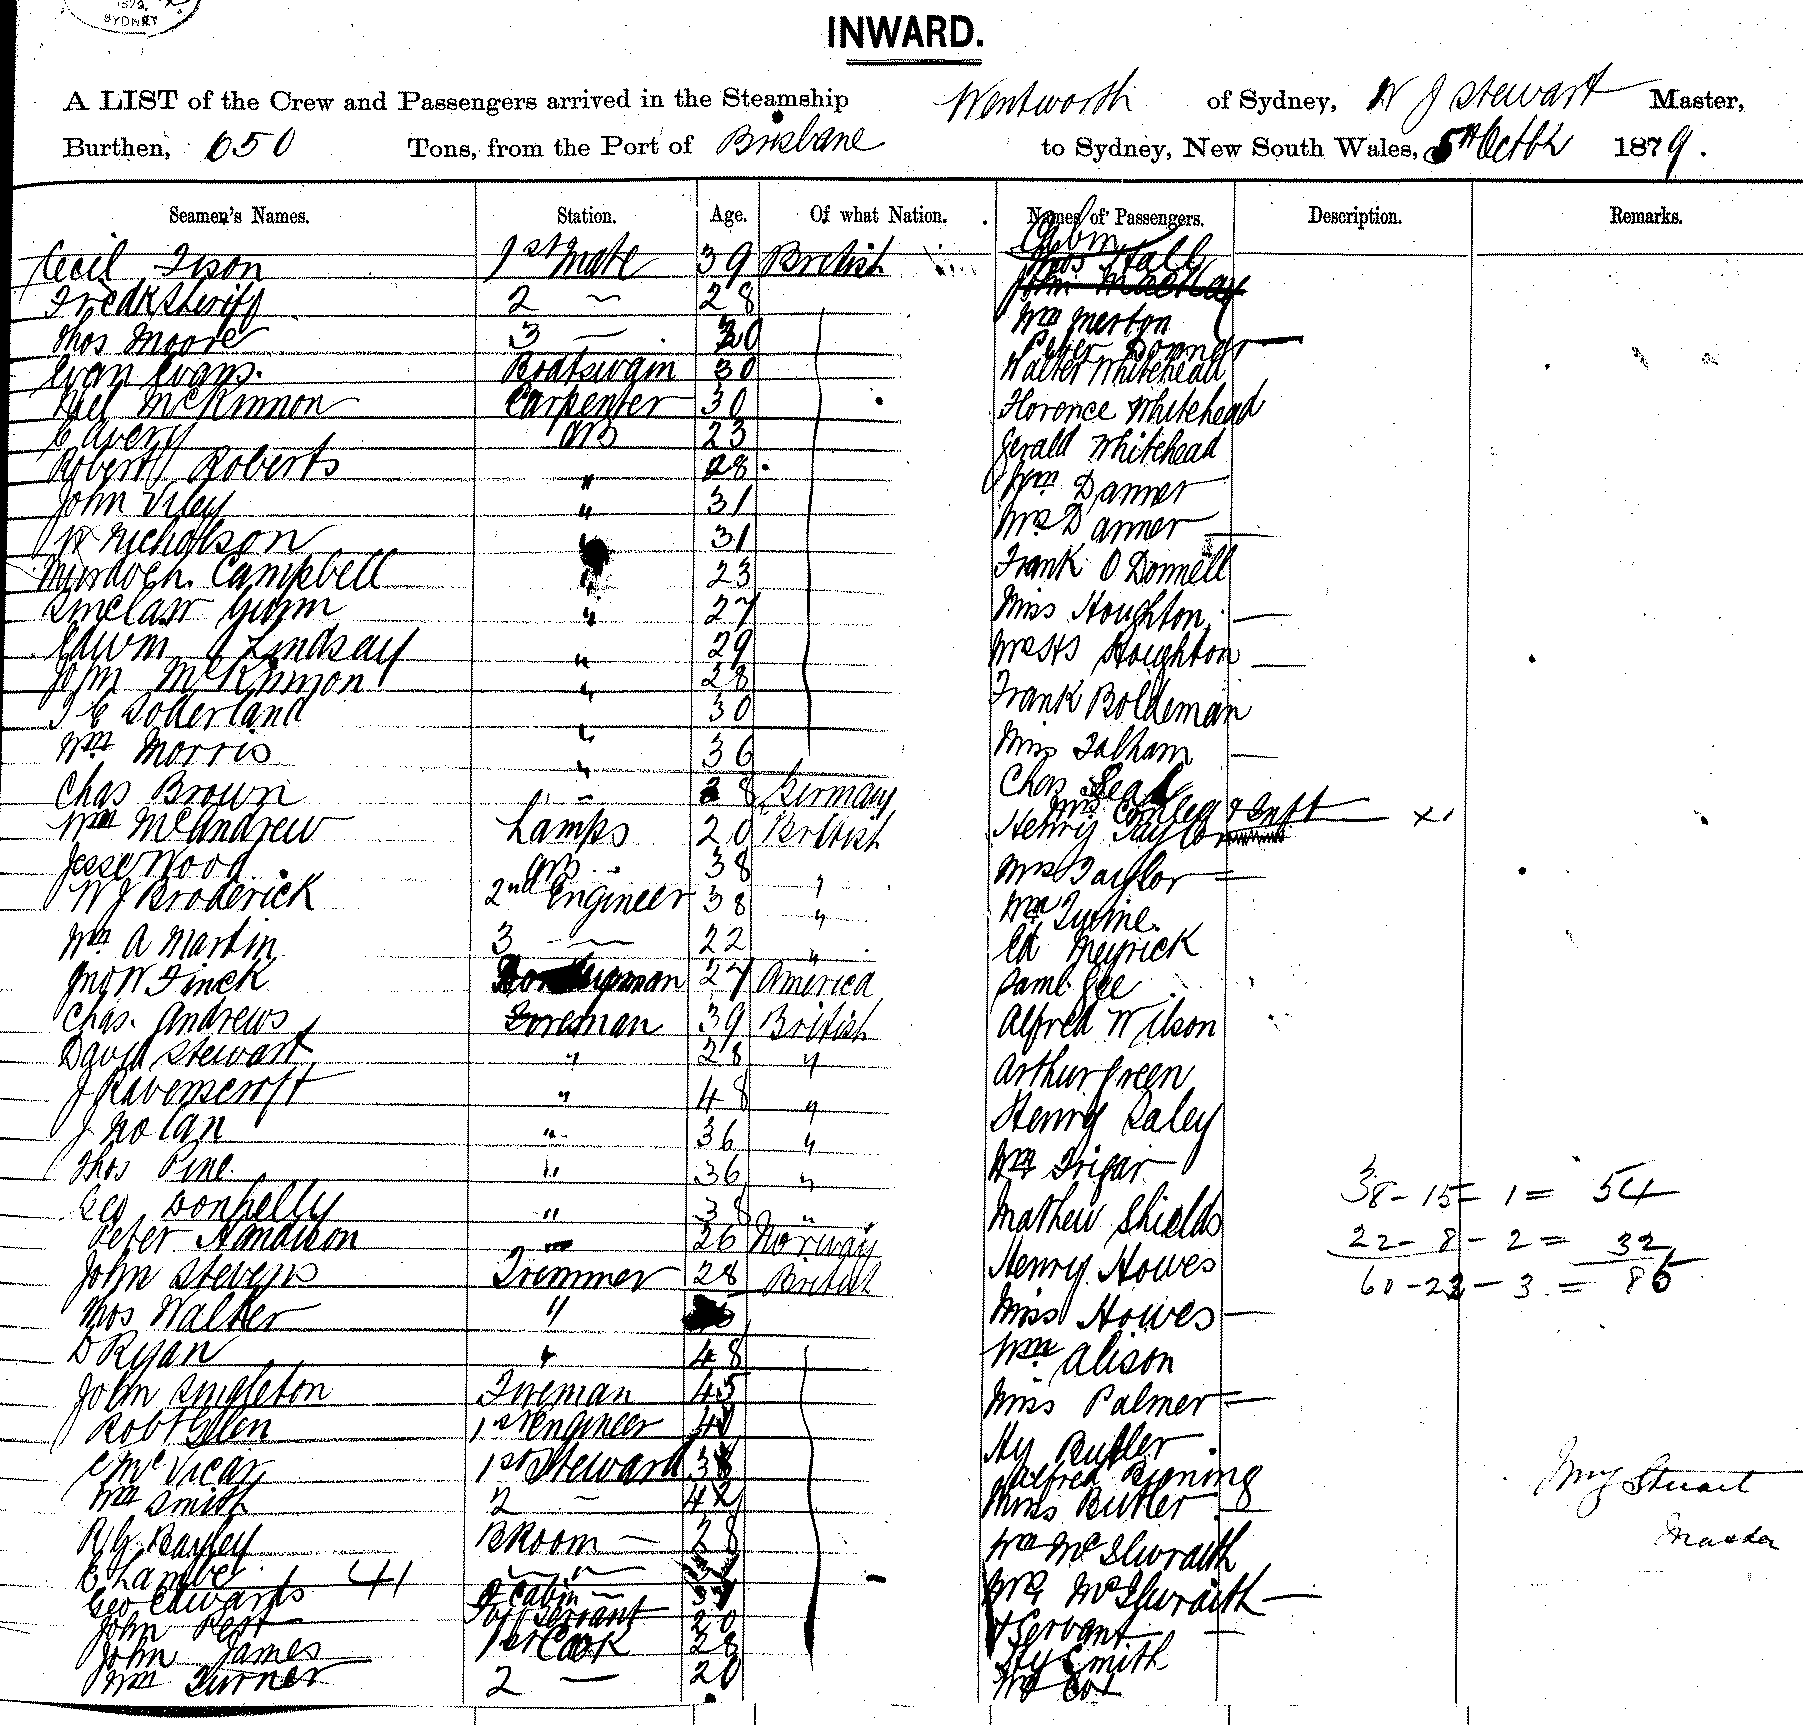 1879.
SYDNEY
INWARD.
A LIST of the Crew and Passengers arrived in the Steamship Wentworth of Sydney, W J Stewart Master,
Burthen, 650 Tons, from the Port of Brisbane to Sydney, New South Wales, 5th Octbr 1879.
Seamen's Names. Station. Age. Of what Nation. Names of Passengers. Description. Remarks.
Cabin
Cecil Tison 1st Mate 39 British Thos Hall
Fredk Sheriff 2 ~ 28 John MacKay
Thos Moore 3 — 20 Wm Merton
Peter Downer —
Evan Evans. Boatswain 30 Walter Whitehead
Neil McKinnon Carpenter 30 Florence Whitehead
C Avery AB 23 Gerald Whitehead
Robert Roberts " 28 Wm Danner
John Viley " 31 Mrs Danner —
W Nicholson " 31 Frank O Donnell
Murdoch Campbell " 23 Miss Houghton —
Sinclair Gunn " 27 Mrs HS Houghton —
Edwin J Lindsay " 29 Frank Boldeman
John McKinnon " 28 Miss Talham —
J E Soderland " 30 Chas Seal
Wm Morris " 36 Mrs Colleg & Inft — x
Chas Brown " 28 Germany Henry Taylor
Wm McAndrew Lamps 20 British Mrs Taylor —
Jesse Wood AB 38 "
W J Broderick 2nd Engineer 38 " Wm Turine
Wm A Martin 3 — 22 " Ed Meyrick
Jno W Finck 27 America Saml Gee
Chas. Andrews Foreman 39 British Alfred Wilson
David Stewart " 28 " Arthur Green
J Ravenscroft " 48 " Henry Daley
J Nolan " 36 " Wm Trigar
Thos Pine " 36 " Mathew Shields
38 - 15 - 1 = 54
Geo Donnelly " 38 "
Peter " 26 Norway Henry Howes
22 - 8 - 2 = 32
John Stevens Trimmer 28 British Miss Howes —
60 - 23 - 3 = 86
Thos Walter " Wm Alison
D Ryan " 48 Miss Palmer —
John Singleton Fireman 45 Hy Butler
Robt Glen 1st Engineer 40 Alfred Bigning
C McVicar 1st Steward 38 Miss Butler —
Jmy Stuart
Wm Smith 2 ~ 42 Wm McIlwraith
Master
R G Bayley B Room — 28 Mrs McIlwraith —
E Lambel 41
Geo Edwards F Cabin — 37 & Servant —
John Pest Servant 20 Hy Smith
John James 1st Cook 28 Cox
Wm Turner 2 — 20